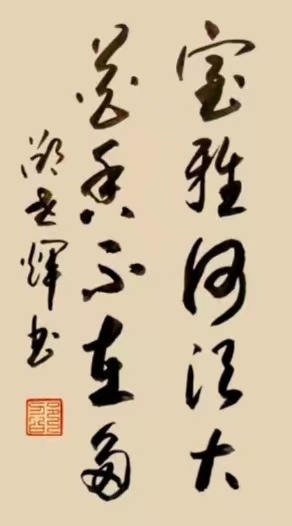 室雅何须大
花香不在多
世辉书